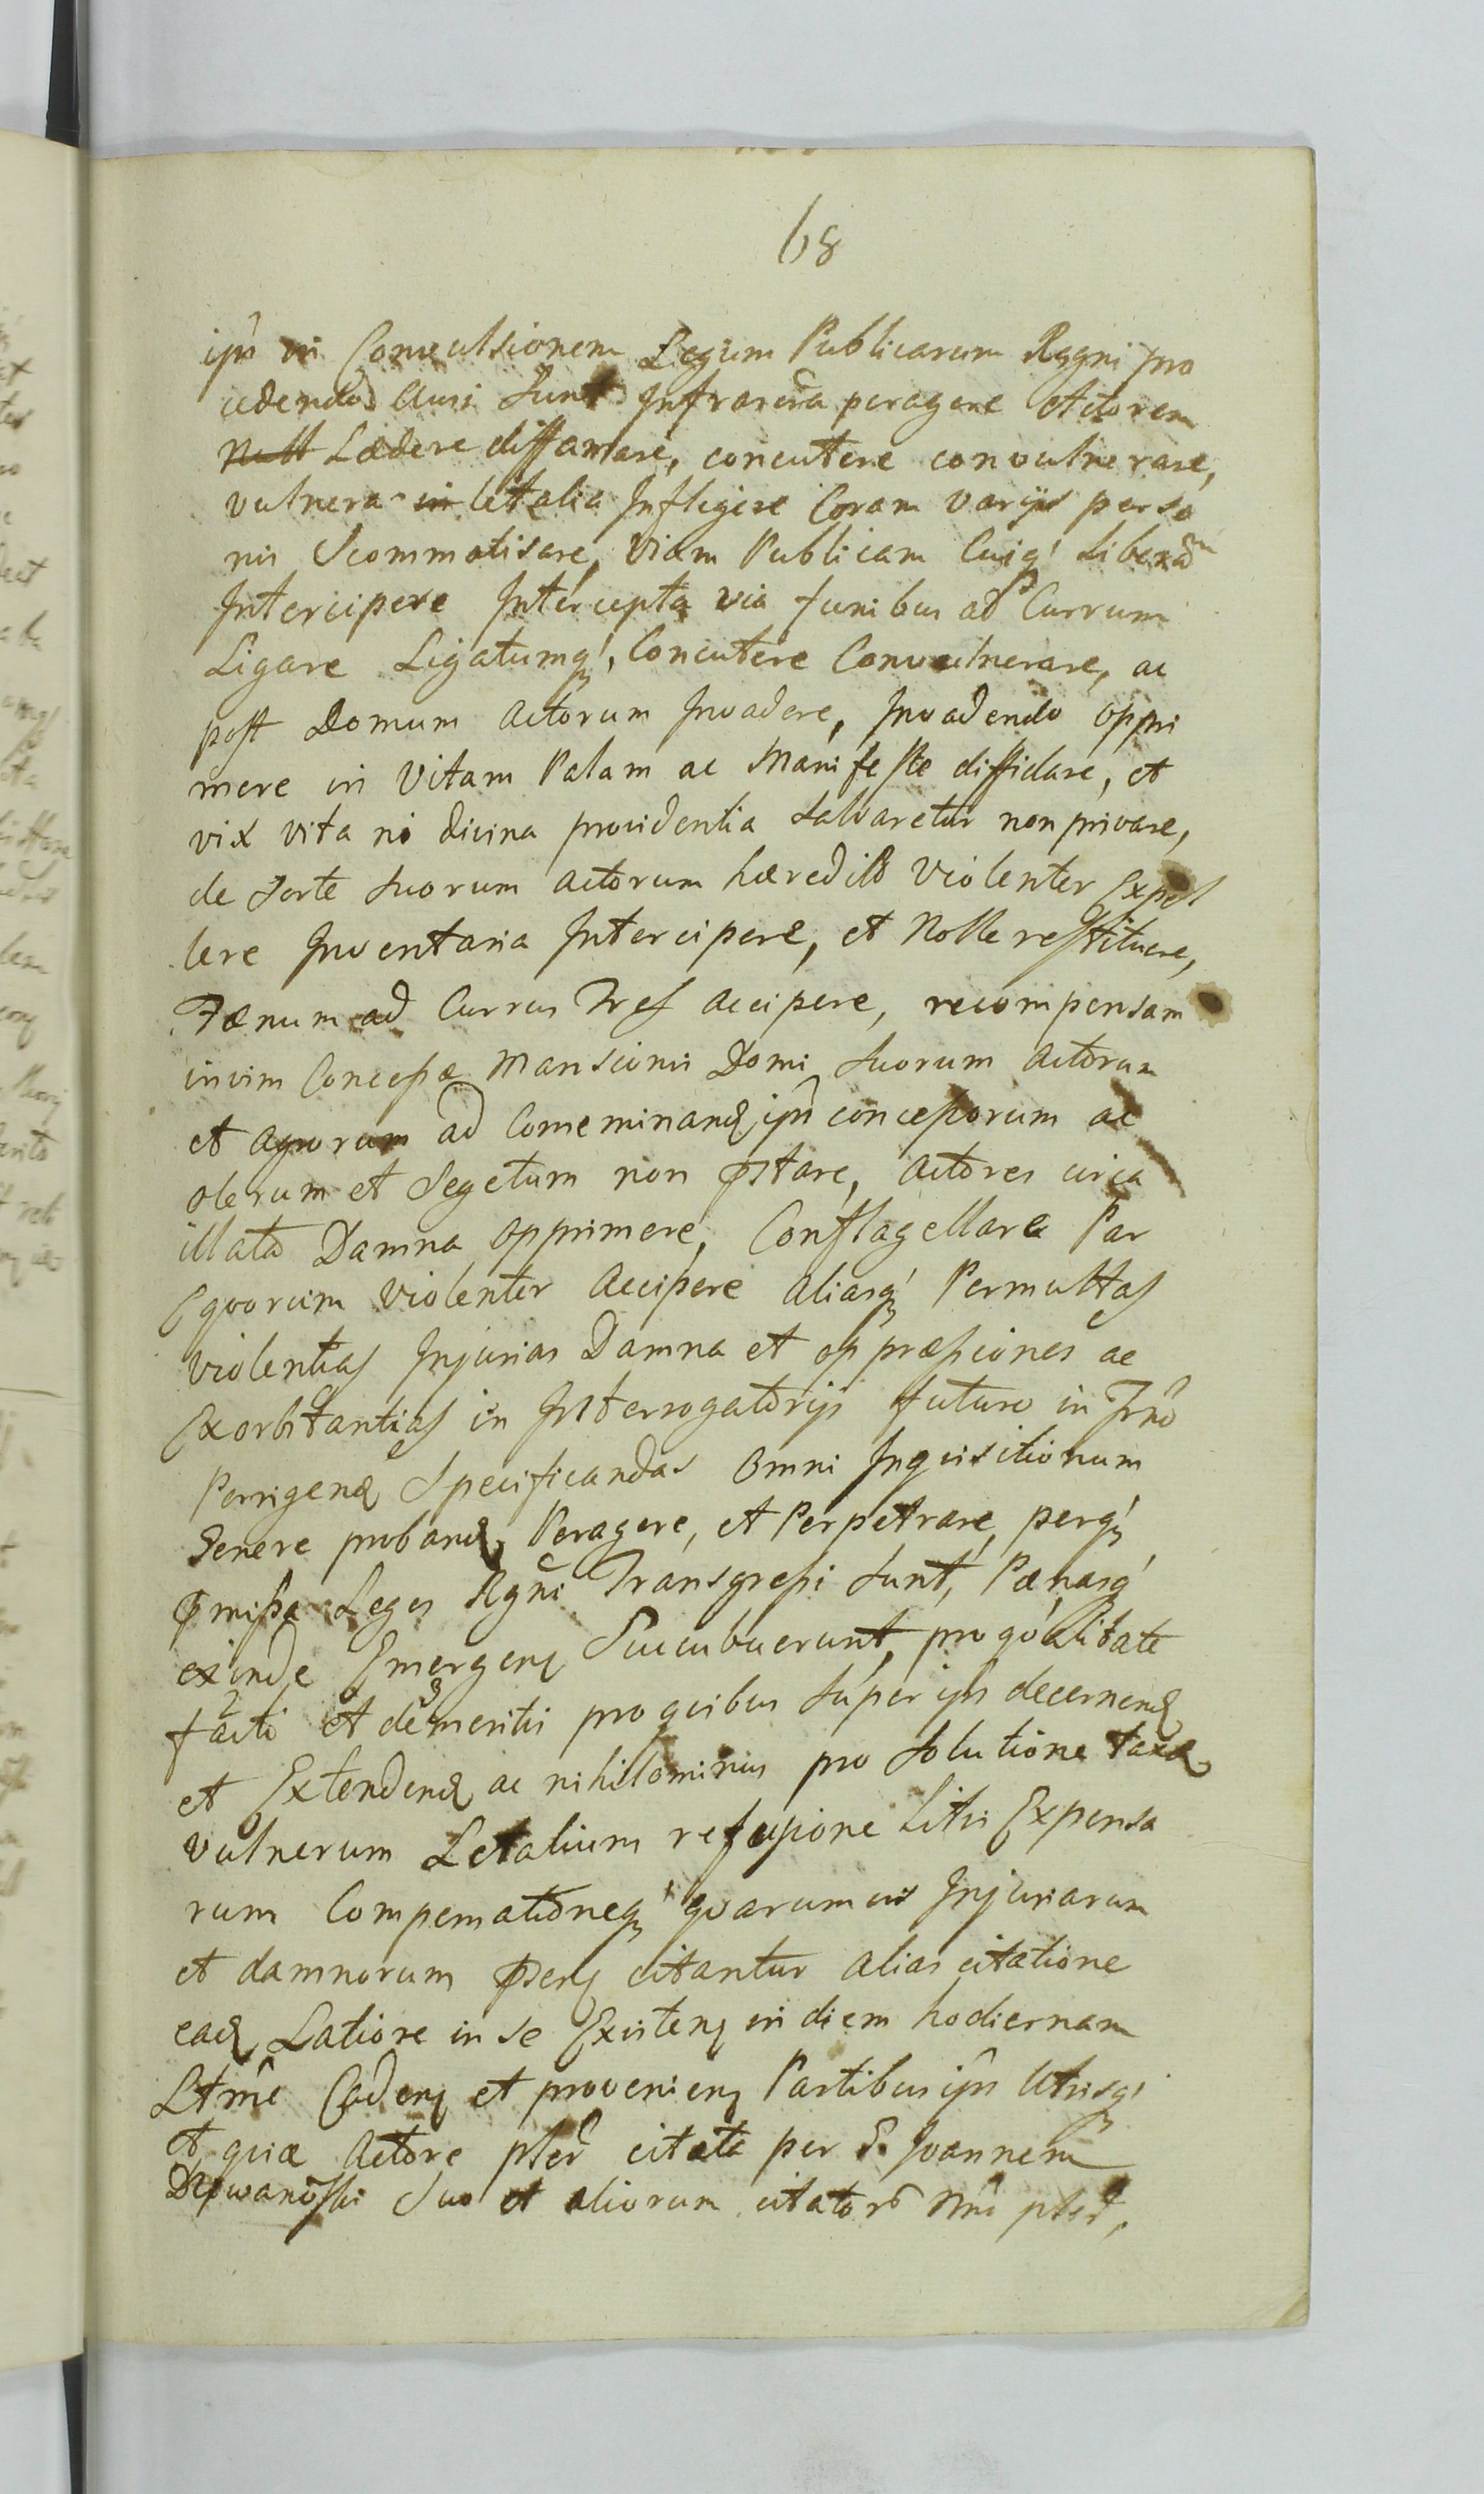 68
ipõ in Convulsionem Legum Publicarum Regni pro
cedendo Ausi Sunt Infrascrãa peragere Actorem
Null Lædere diffamare, concutere convulnerare,
vulnera in letalia Infligere Coram varijs perso
nis Scommatisare, Viam Publicam Cuiq; Liberam
Intercipere Intercepta via funibus ad Currum
Ligare Ligatumq;, Concutere Convulnerare, ac
post Domum Actorum Invadere, Invadendo oppri
mere in Vitam Palam ac Manifeste diffidare, et
vix vita ni divina providentia Salvaretur non privare,
de Sorte Suorum Actorum hæredit̃ Violenter Expel
lere Inventaria Intercipere, et Nolle restituere,
Fænum ad Currus Tres Accipere, recompensam
invim Concessæ Mansionis Domi Suorum Actorum
et Agrorum ad Comeminand ipõ concessorum ac
olerum et Segetum non pstare, Actores circa
illata Damna Opprimere, Conflagellare Par
Equorum Violenter Accipere Aliasq; Permultas
violentias Injurias Damna et oppræssiones ac
Exorbitantias in Interrogatorijs futuro in Trnõ
Porrigend Specificandas Omni Inquisitionum
Genere proband, Peragere, et Perpetrare, perq;
pmissa Leges Rgñi Transgressi Sunt, Pænasq;
exinde Emergen Succubuerunt, pro qualitate
facti et demeritis pro quibus Super ipõ decernend
et Extendend ac nihilominus pro Solutione taxæ
vulnerum Letalium refusione Litis Expensa
rum Compensationeq; quarumvis Injuriarum
et damnorum psen citantur alias citatione
ead Latiore in se Existen in diem hodiernam
Ltmẽ Caden et provenien Partibus ipõ Utrisq;
et quia Actore pter̃ citata per G. Joannem
Suo et aliorum citator̃ Nñe pter̃,